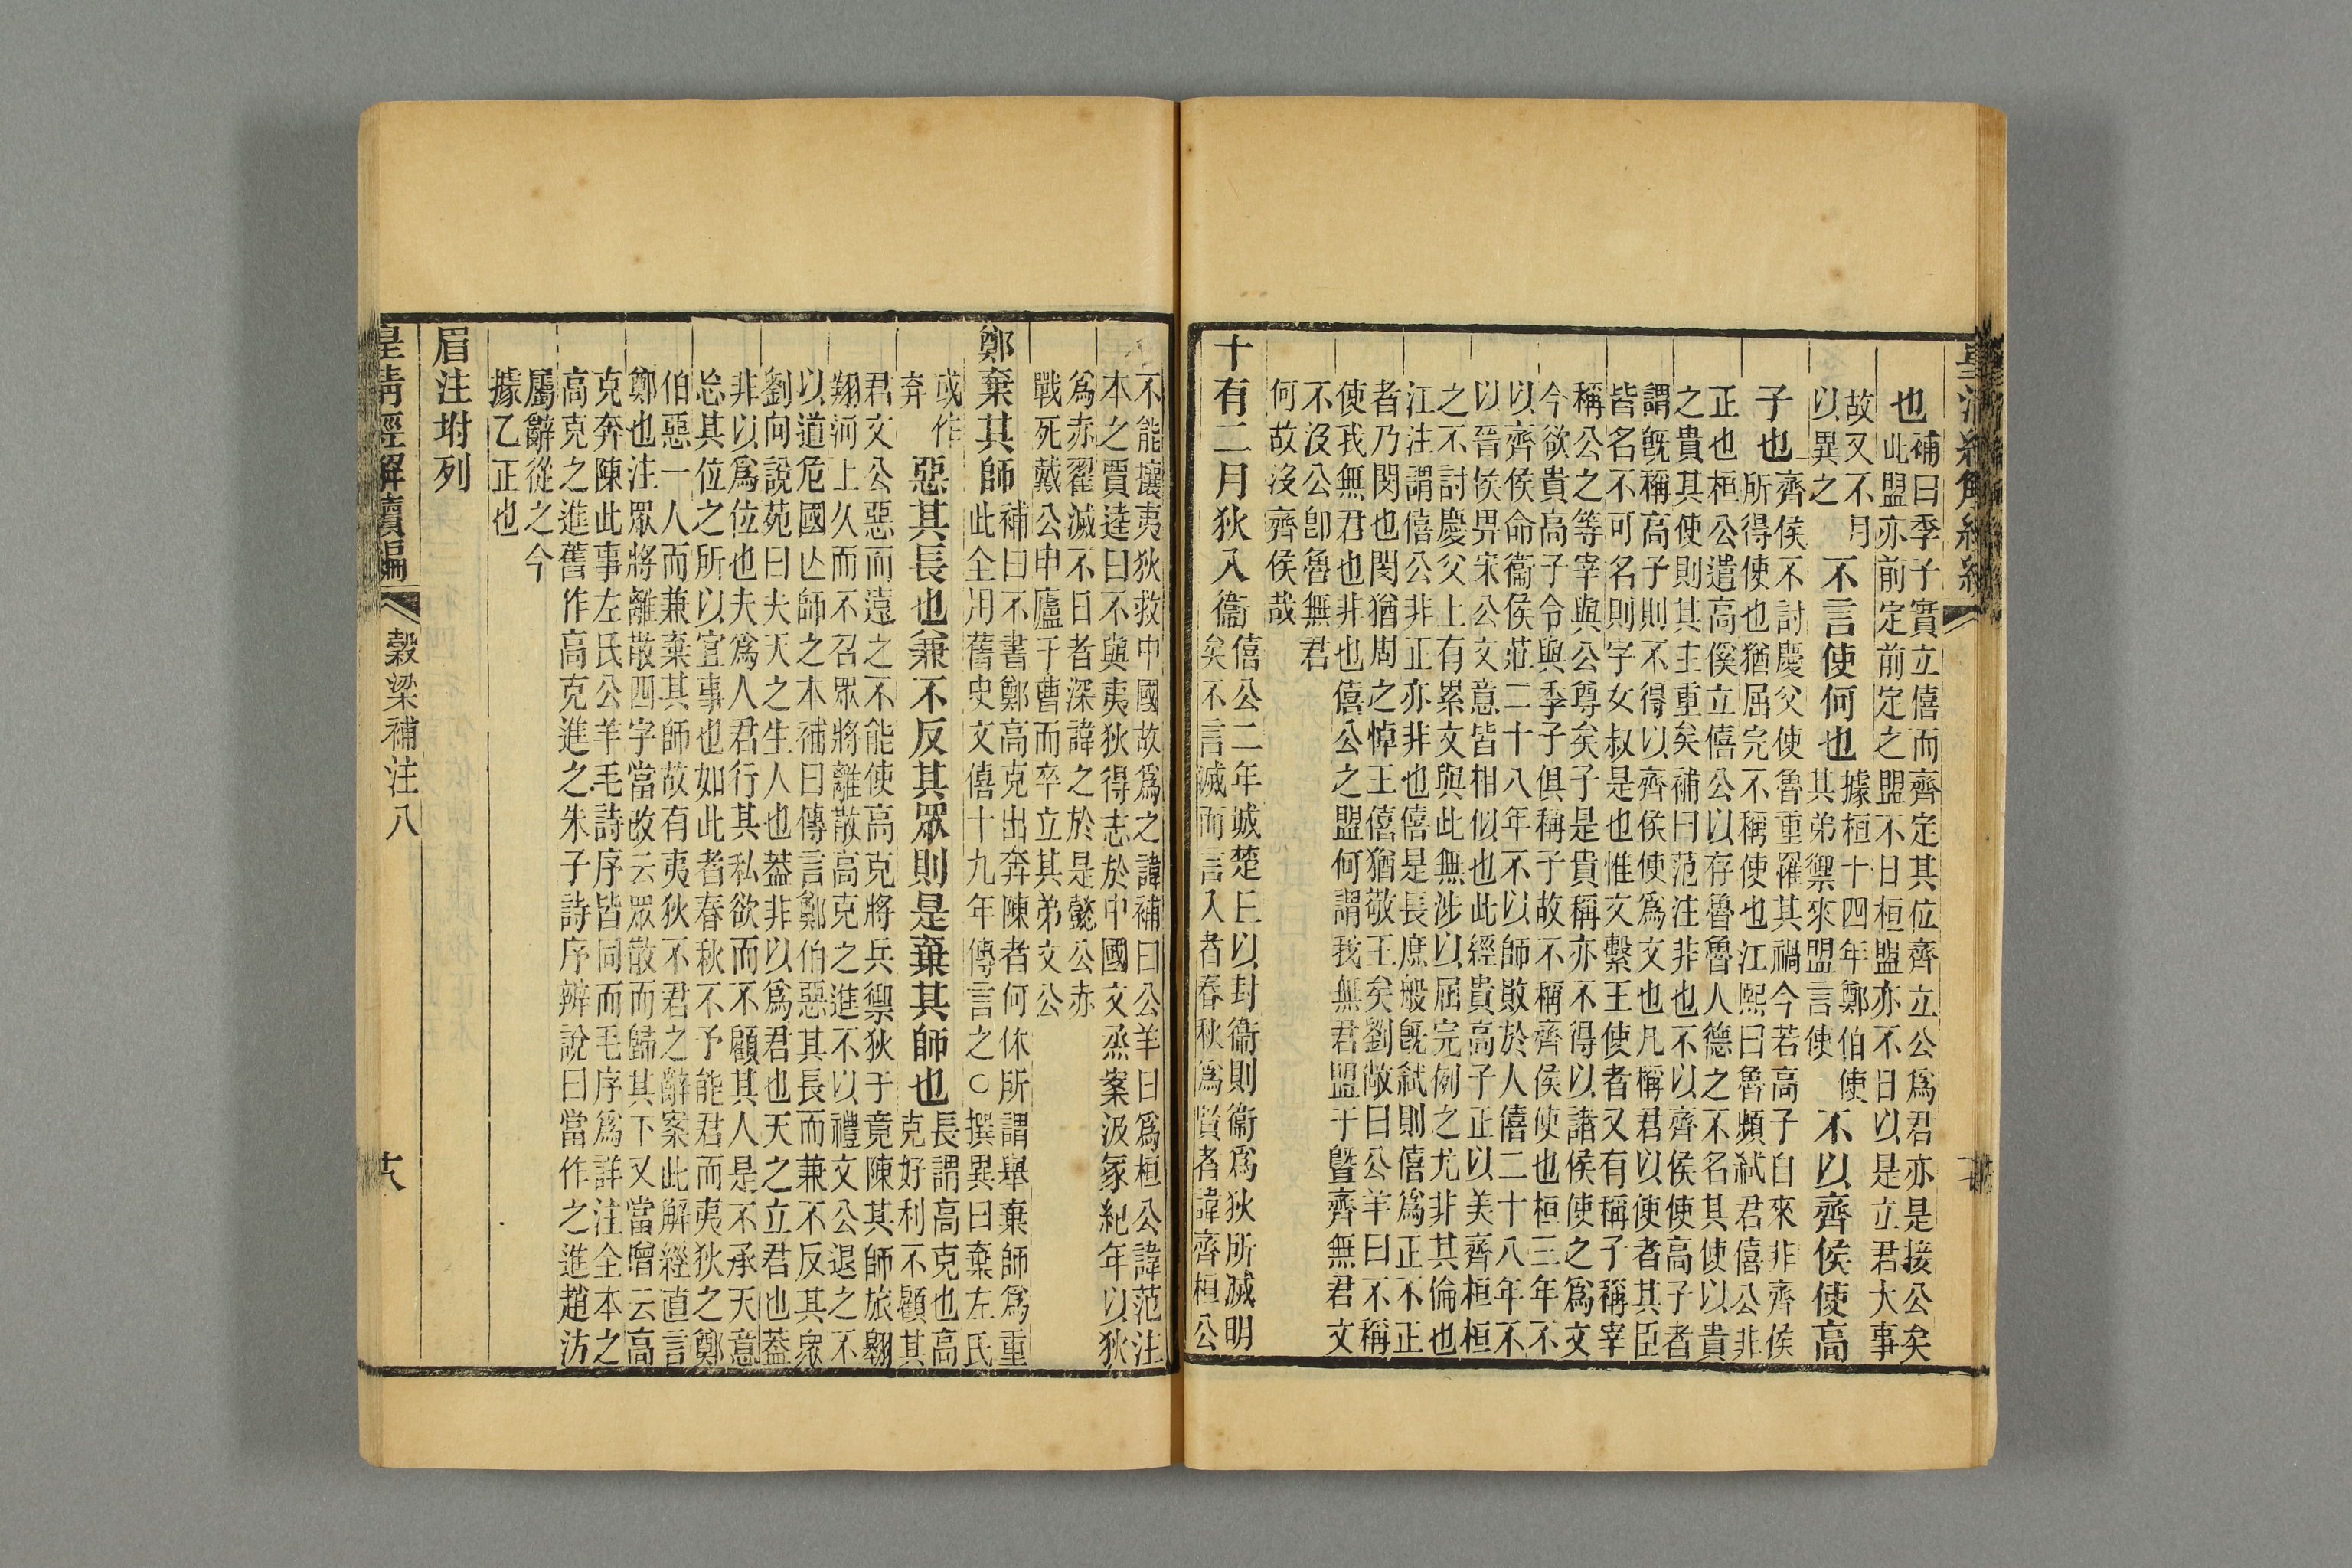 皇清經解續編
也補曰季子實立僖而齊定其位齊立公爲君亦是接公矣
此盟亦前定前定之盟不日桓盟亦不日以是立君大事
故又不月
以異之
不言使何也
據桓十四年鄭伯使
其弟禦來盟言使
不以齊侯使高
子也齊侯不討慶父使魯重罹其禍今若高子自來非齊侯
所得使也猶屈完不稱使也江熙曰魯頻弒君僖公非
正也桓公遣高傒立僖公以存魯魯人德之不名其使以貴
之貴其使則其主重矣補曰范注非也不以齊侯使高子者
謂旣稱高子則不得以齊侯使爲文也凡稱君以使者其臣
皆名不可名則字女叔是也惟文繫王使者又有稱子稱宰
稱公之等宰與公尊矣子是貴稱亦不得以諸侯使之爲文
今欲貴高子令與季子俱稱子故不稱齊侯使也桓三年不
以齊侯命衞侯莊二十八年不以師敗於人僖二十八年不
以晉侯畀宋公文意皆相似也此經貴高子正以美齊桓桓
之不討慶父上有累文與此無涉以屈完例之尤非其倫也
江注謂僖公非正亦非也僖是長庶般旣弒則僖爲正不正
者乃閔也閔猶周之悼王僖猶敬王矣劉敞曰公羊曰不稱
使我無君也非也僖公之盟何謂我無君盟于曁齊無君文
不沒公卽魯無君
何故沒齊侯哉
十有二月狄入衞僖公二年城楚丘以封衞則衞爲狄所滅明
矣不言滅而言入者春秋爲賢者諱齊桓公
不能攘夷狄救中國故爲之諱補曰公羊曰爲桓公諱范注
本之賈逵曰不與夷狄得志於中國文烝案汲冢紀年以狄
爲赤翟滅不日者深諱之於是懿公赤
戰死戴公申廬于曹而卒立其弟文公
鄭棄其師補曰不書鄭高克出奔陳者何休所謂舉棄師爲重
此全用舊史文僖十九年傳言之○撰異曰棄左氏
或作
弃
惡其長也兼不反其眾則是棄其師也
長謂高克也高
克好利不顧其
君文公惡而遠之不能使高克將兵禦狄于竟陳其師旅翱
翔河上久而不召眾將離散高克之進不以禮文公退之不
以道危國亾師之本補曰傳言鄭伯惡其長而兼不反其衆
劉向說苑曰夫天之生人也葢非以爲君也天之立君也葢
非以爲位也夫爲人君行其私欲而不顧其人是不承天意
忘其位之所以宜事也如此者春秋不予能君而夷狄之鄭
伯惡一人而兼棄其師故有夷狄不君之辭案此解經直言
鄭也注眾將離散四字當改云眾散而歸其下又當增云高
克奔陳此事左氏公羊毛詩序皆同而毛序爲詳注全本之
高克之進舊作高克進之朱子詩序辨說曰當作之進趙汸
屬辭從之今
據乙正也
眉注坿列
皇清經解續編
榖梁補注八